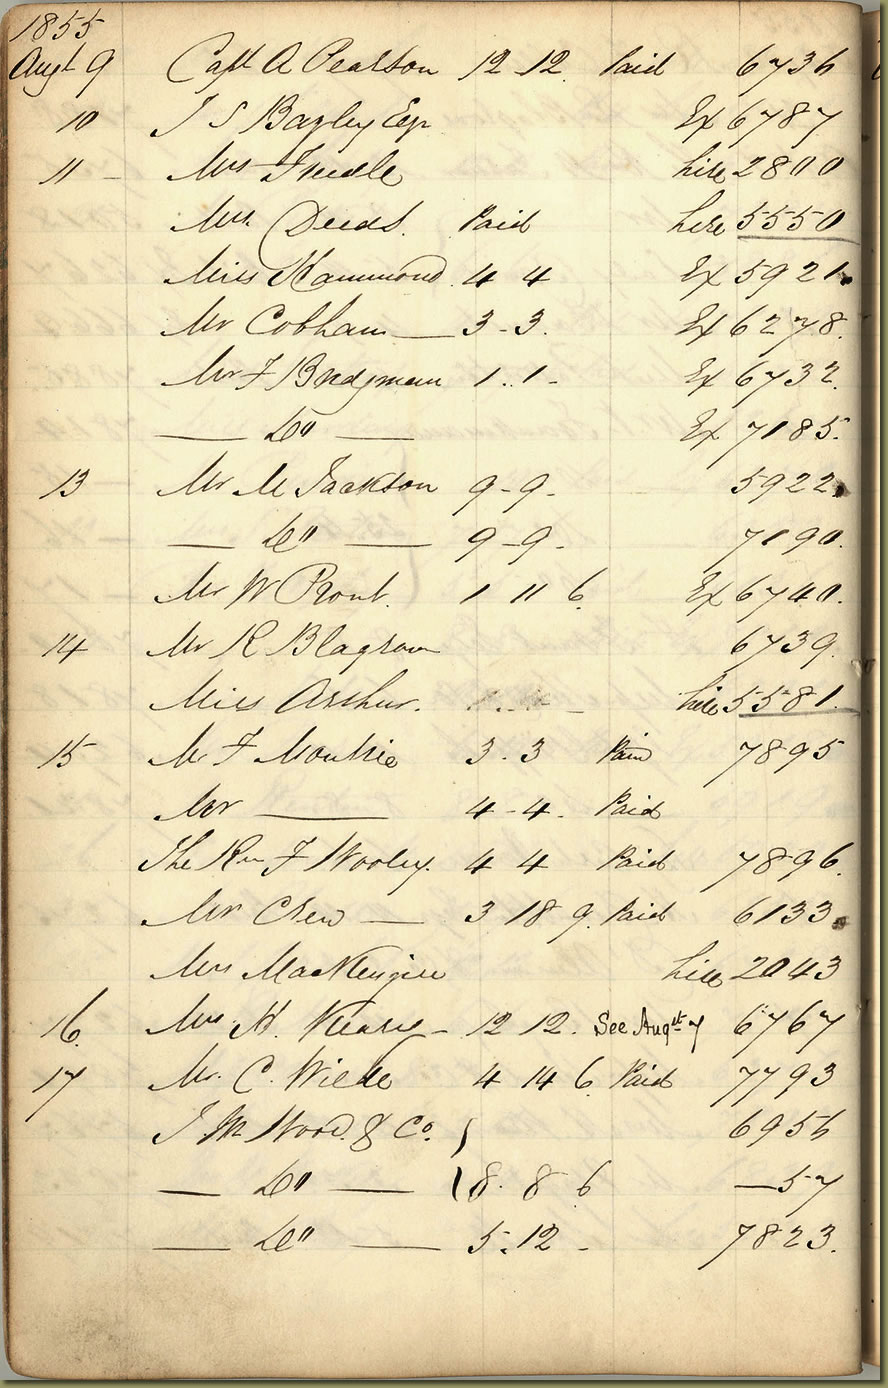 1855
Augt 9 Capt A Pearson 12 12 Paid 6736
10 J S Bagley Esqr Ex 6787
11 - Mrs hire 2800
Mrs Deeds. Paid hire 5550
Miss Hammond 4 4 Ex 5921.
Mr Cobham — 3-3. Ex 6278.
Mr F Bridgman 1..1- Ex 6732.
— Do — Ex 7185.
13 Mr M Jackson 9-9. 5922.
— Do — 9-9. 7190.
Mr W Prout. 1 11 6. Ex 6740.
14 Mr R Blagrove 6739.
Miss Arthur. hire 5581.
15 Mr F Moutrie 3.3 Paid 7895
Mr — 4-4. Paid
The Rev F Wooley. 4 4 Paid 7896.
Mr Crew — 3 18 9. Paid 6133.
Mrs MacKenzie hire 2043
16. Mrs H. 12 12. See Augst 7 6767
17 Mr. C. Wilde 4 14 6. Paid 7793
J M Wood. & Co. } 6956
— Do — } 8. 8 6 —57
— Do — 5.12 - 7823.